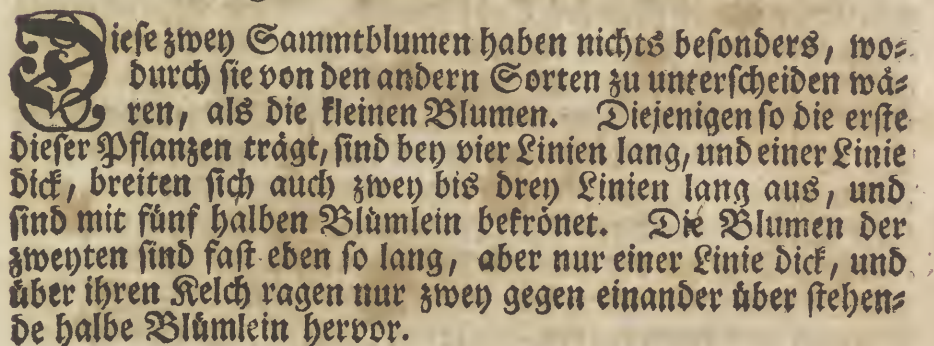 Diese zwey Sammtblumen haben nichts besonders, wo⸗
durch sie von den andern Sorten zu unterscheiden wä⸗
ren, als die kleinen Blumen. Diejenigen so die erste
dieser Pflanzen trägt, sind bey vier Linien lang, und einer Linie
dick, breiten sich auch zwey bis drey Linien lang aus, und
sind mit fünf halben Blümlein bekrönet. Die Blumen der
zweyten sind fast eben so lang, aber nur einer Linie dick, und
über ihren Kelch ragen nur zwey gegen einander über stehen⸗
de halbe Blümlein hervor.